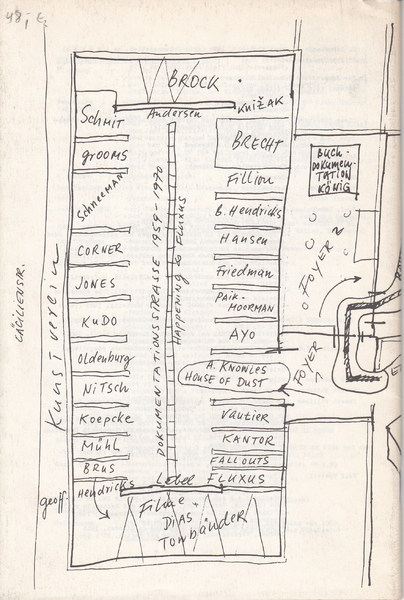 48,-
BROCK
Schmit
Andersen
KNIŽAK
BRECHT
GROOMS
Schneeman
Fillion
B. Hendricks
CORNER
Hansen
JONES
Friedman
KUDO
PAIK-
MOORMAN
AYO
Oldenburg
NITSCH
A. KNOWLES
HOUSE OF DUST
Koepcke
Vautier
Mühl
KANTOR
BRUS
FALLOUTS
geoff.
Hendricks
Lebel
FLUXUS
Filme
DIAS
Tonbänder
DOKUMENTATIONSSTRASSE 1959-1970
HAPPENING & FLUXUS
Kunstverein
CÄCILIENSTR.
BUCH-
DOKUMEN-
TATION
KÖNIG
FOYER 2
FOYER